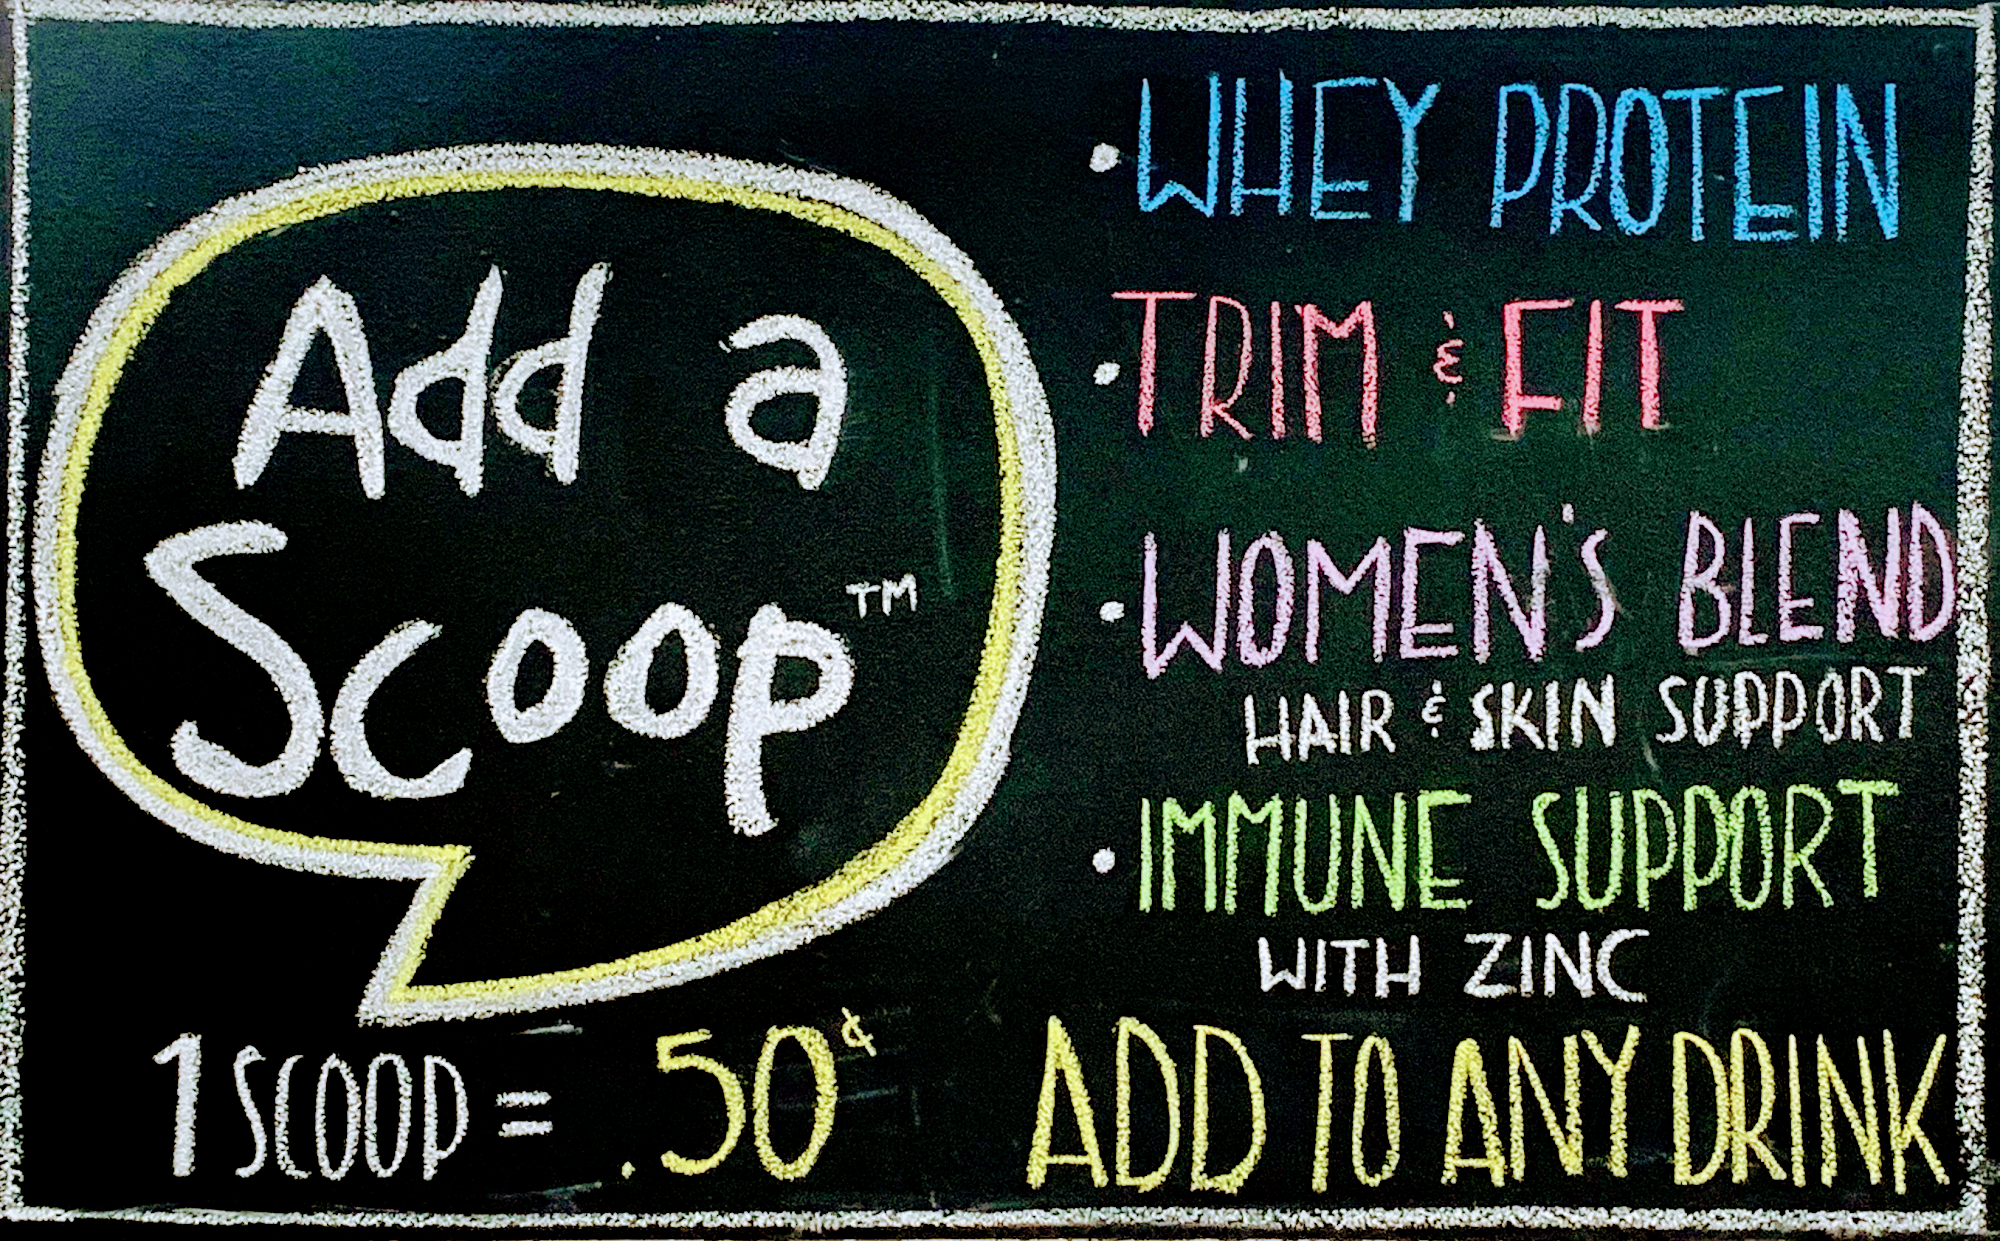 Add a
Scoop™
1 SCOOP = .50¢
• WHEY PROTEIN
• TRIM & FIT
• WOMEN'S BLEND
HAIR & SKIN SUPPORT
• IMMUNE SUPPORT
WITH ZINC
ADD TO ANY DRINK